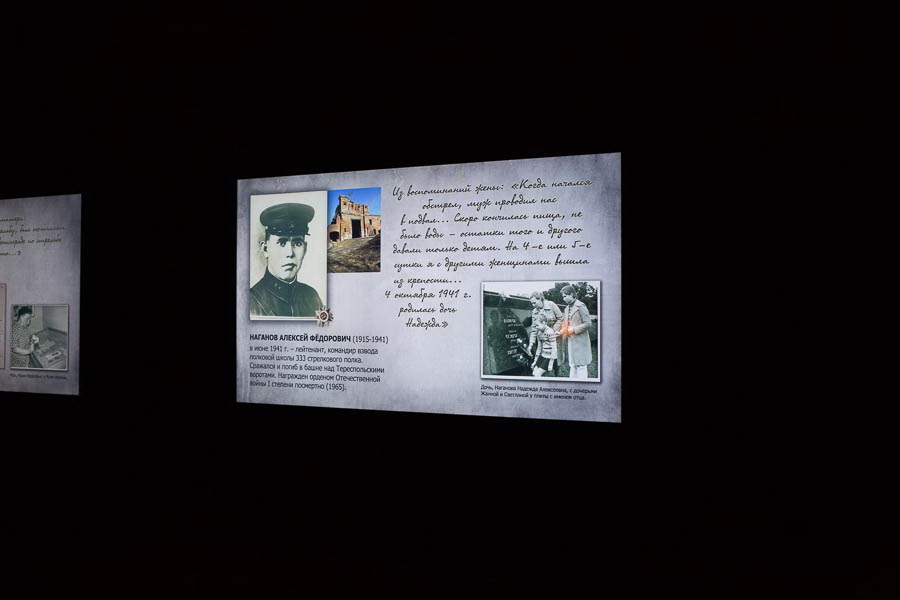 Из воспоминаний жены: «Когда начался
обстрел, муж проводил нас
в подвал... Скоро кончилась пища, не
было воды – остатки того и другого
давали только детям. На 4-е или 5-е
сутки я с другими женщинами вышла
из крепости...
4 октября 1941 г.
родилась дочь
Надежда»
НАГАНОВ АЛЕКСЕЙ ФЁДОРОВИЧ (1915-1941)
в июне 1941 г. – лейтенант, командир взвода
полковой школы 333 стрелкового полка.
Сражался и погиб в башне над Тереспольскими
воротами. Награжден орденом Отечественной
войны I степени посмертно (1965).
Дочь, Наганова Надежда Алексеевна, с дочерьми
Жанной и Светланой у плиты с именем отца.